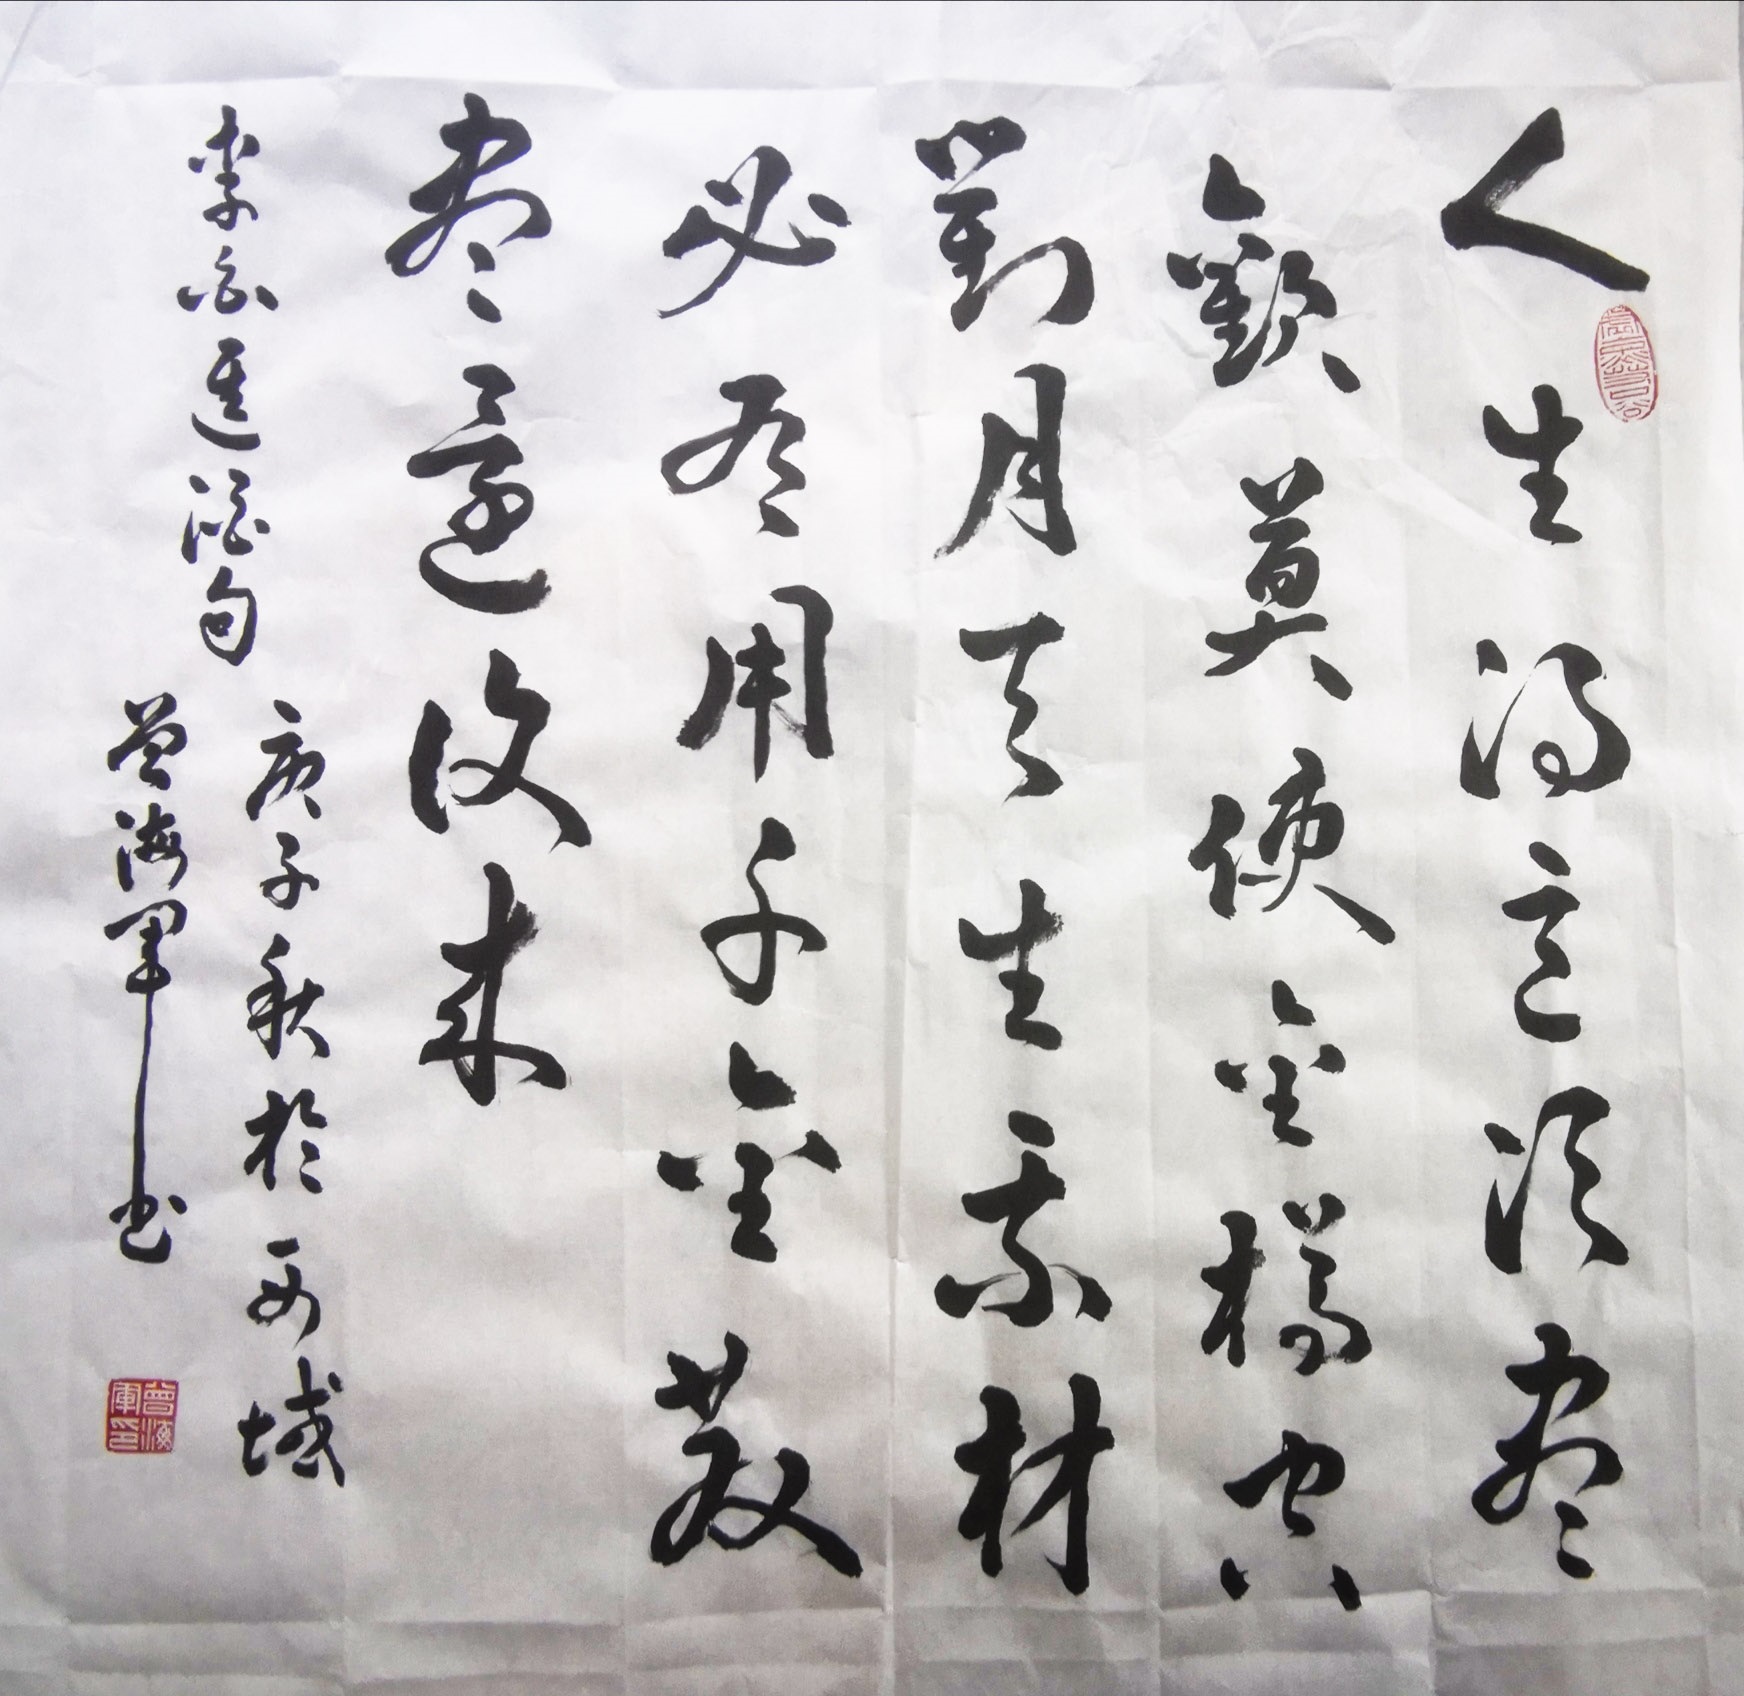 人生得意须尽
歡莫使金樽空
對月天生我材
必有用千金散
尽還復来
李白進酒句
庚子秋於西域
曾海军书
曾海軍印